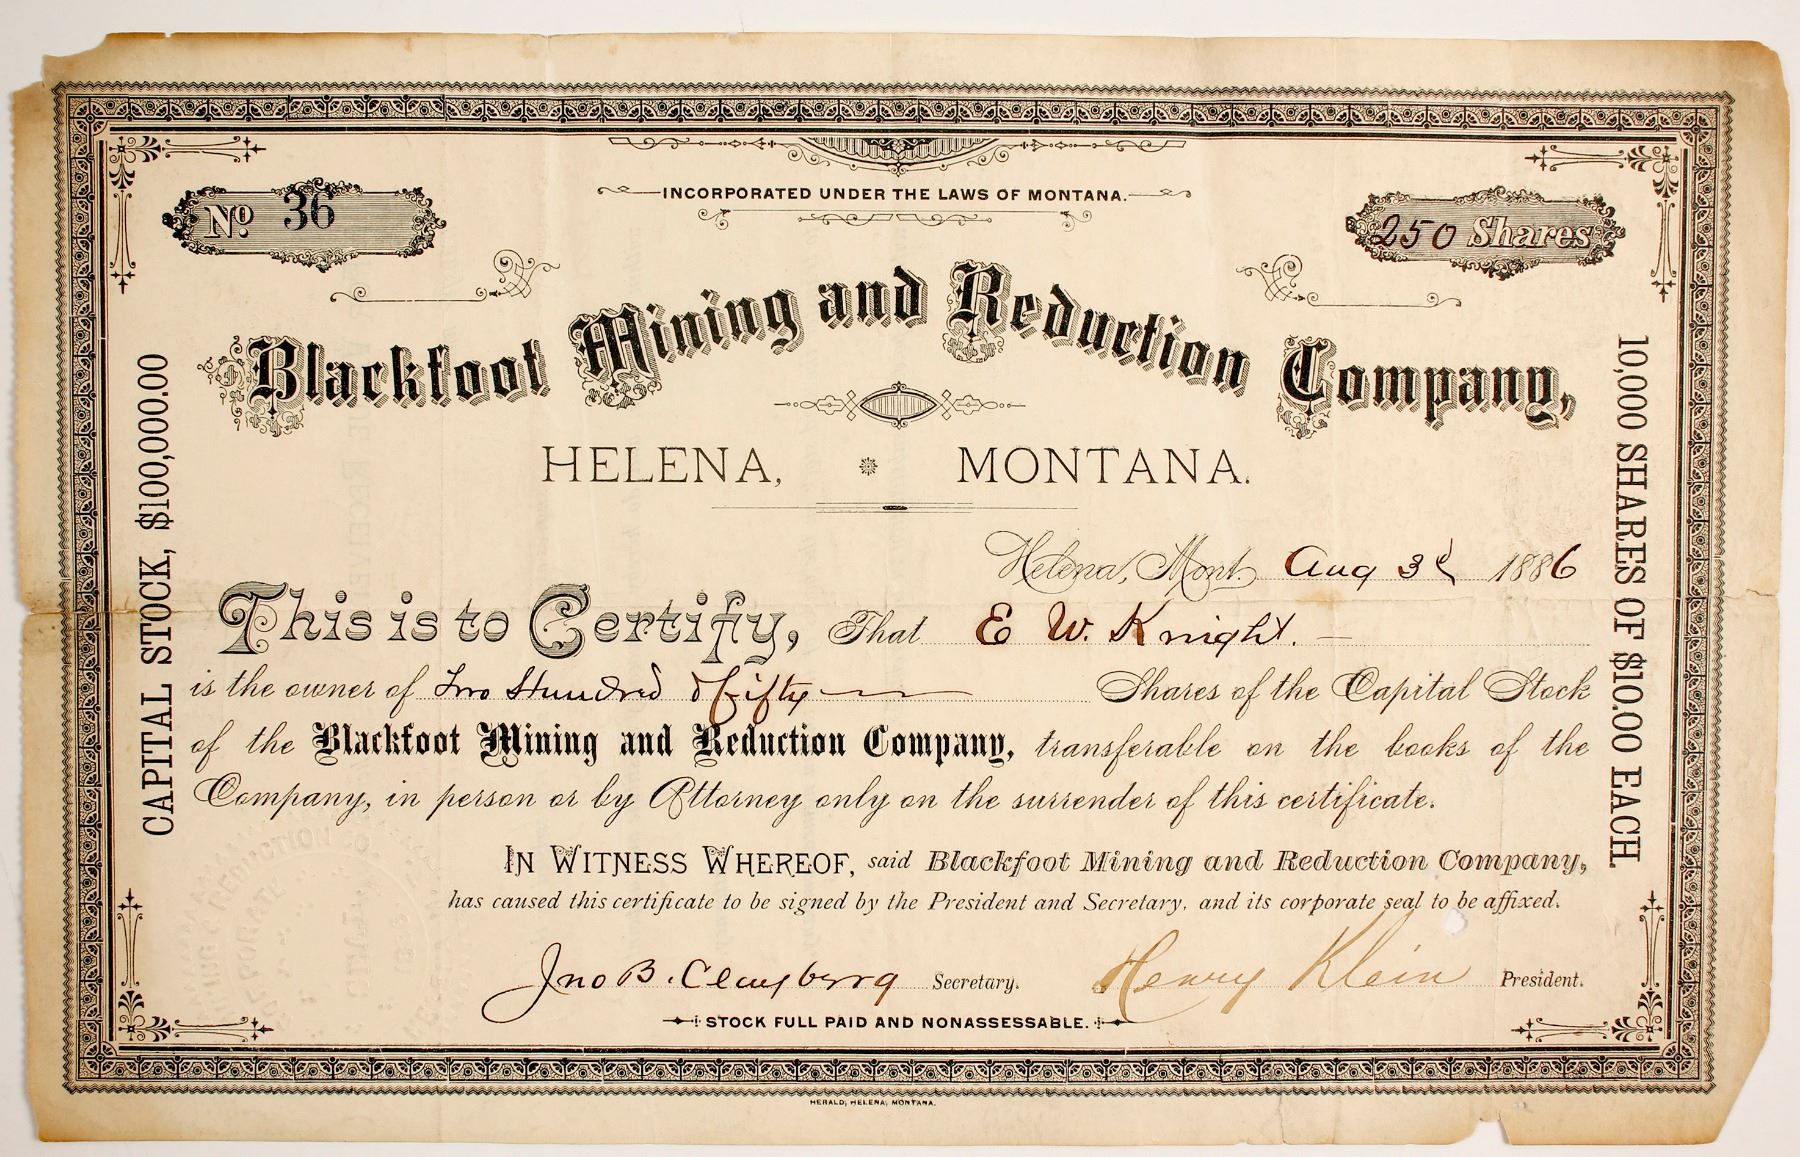 INCORPORATED UNDER THE LAWS OF MONTANA.
No. 36
250 Shares
Blackfoot Mining and Reduction Company,
HELENA, MONTANA.
CAPITAL STOCK, $100,000.00
10,000 SHARES OF $10.00 EACH.
Helena, Mont. Aug 3d 1886
This is to Certify, That E W. Knight.
is the owner of Two Hundred & Fifty Shares of the Capital Stock
of the Blackfoot Mining and Reduction Company, transferable on the books of the
Company, in person or by Attorney only on the surrender of this certificate.
IN WITNESS WHEREOF, said Blackfoot Mining and Reduction Company,
has caused this certificate to be signed by the President and Secretary, and its corporate seal to be affixed.
Jno B. Clayberg Secretary. Henry Klein President.
STOCK FULL PAID AND NONASSESSABLE.
HERALD, HELENA, MONTANA.